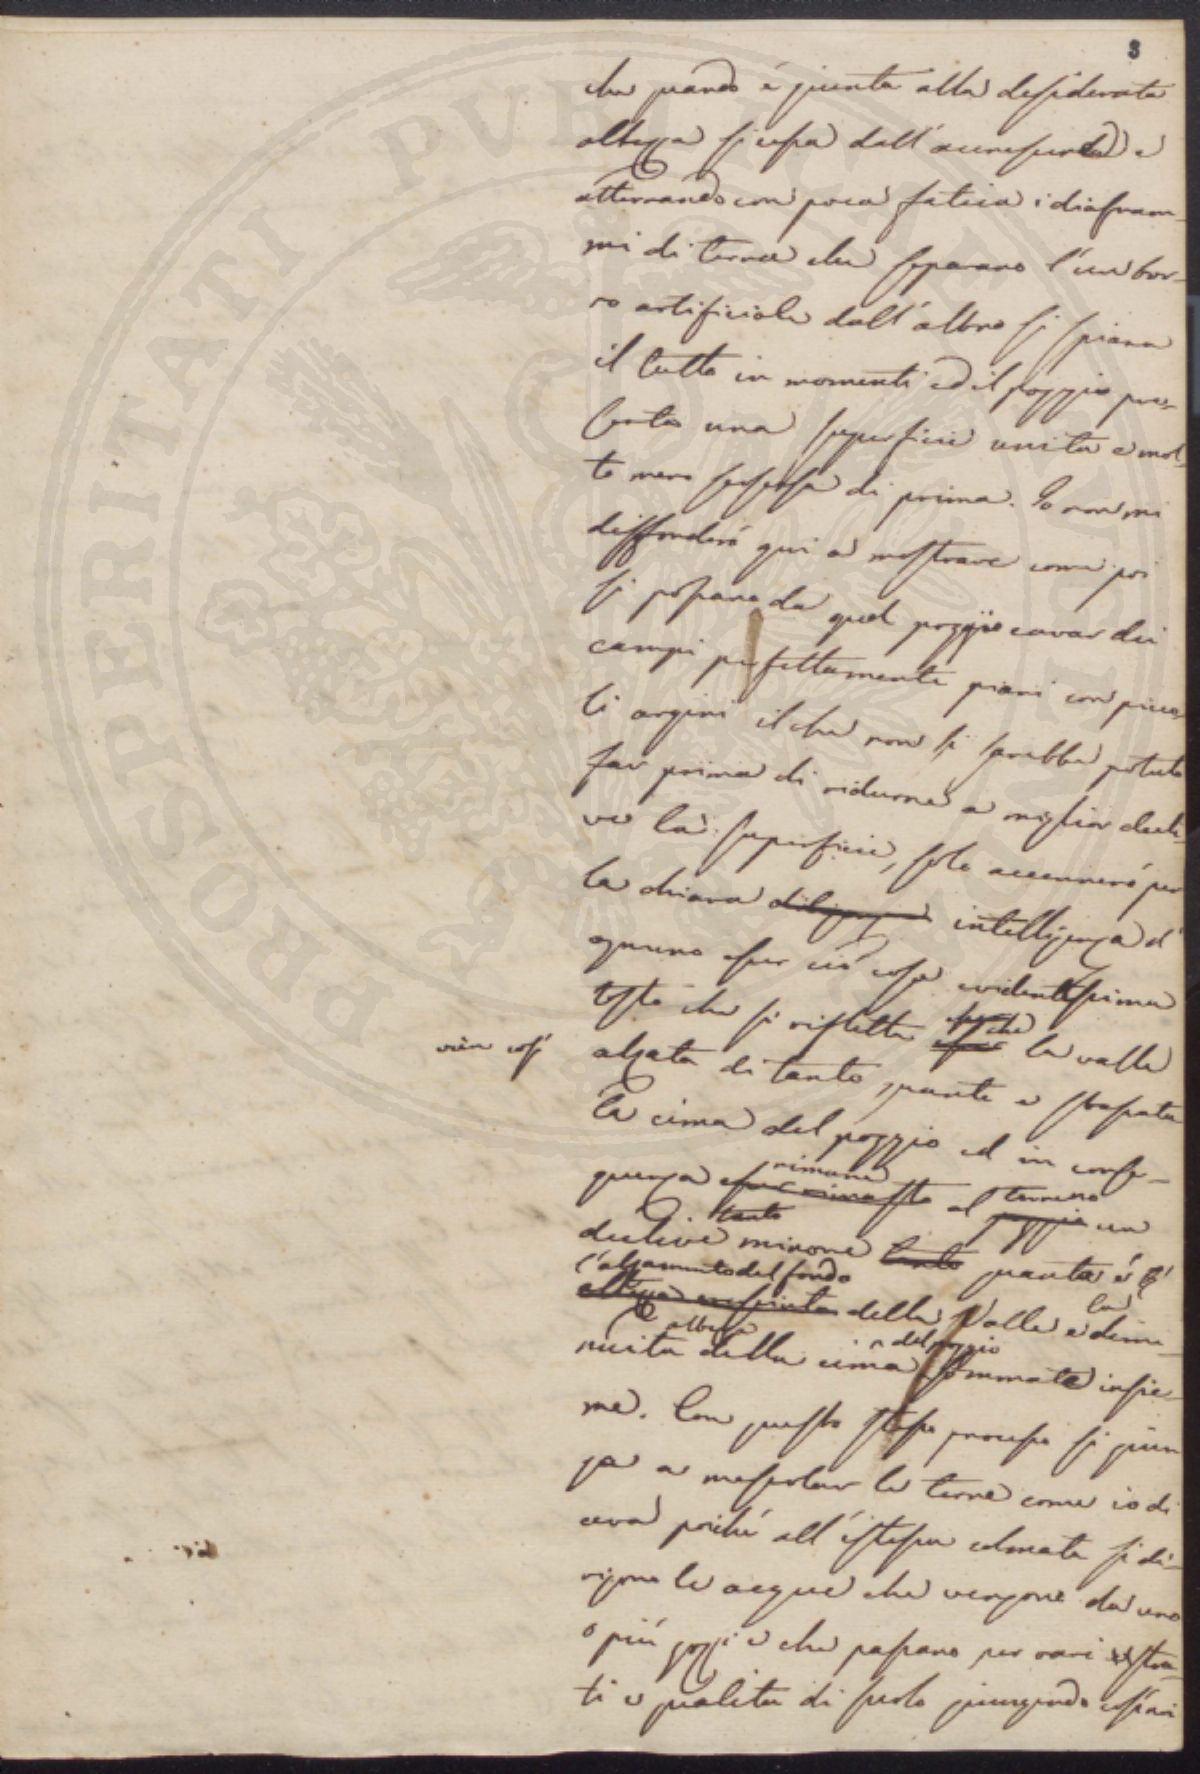 3
che quando è giunta alla desiderata
altezza si cessa dall'accrescerla e
atterrando con poca fatica i diafram-
mi di terra che separano l'un bor-
ro artificiale dall'altro si spiana
il tutto in momenti ed il poggio pre-
senta una superficie unita e mol-
to meno scoscesa di prima. Io non mi
diffonderó qui a mostrare come poi
si possano da quel poggio cavar dei
campi perfettamente piani con picco-
li argini il che non si sarebbe potuto
far prima di ridurne a miglior decli-
ve la superficie, solo accenneró per
la chiara intelligenza d'
ognuno esser ció cosa evidentissima
tosto che si rifletta che la valle
vien così
alzata di tanto, quanto è sbassata
la cima del poggio ed in conse-
rimane terreno
guenza al un
tanto
declive minore tanto quanto è l'
l'alzamento del fondo
della Valle e la dimi-
altezza del poggio
nuita della cima sommate insie-
me. Con questo stesso processo si giun
ge a mescolar le terre come io di
ceva poiché all'istessa colmata si di-
rigono le acque che vengono da uno
o più poggi e che passano per vari stra-
ti e qualità di suolo giungendo così ai
PROSPERITATI PUBLICAE